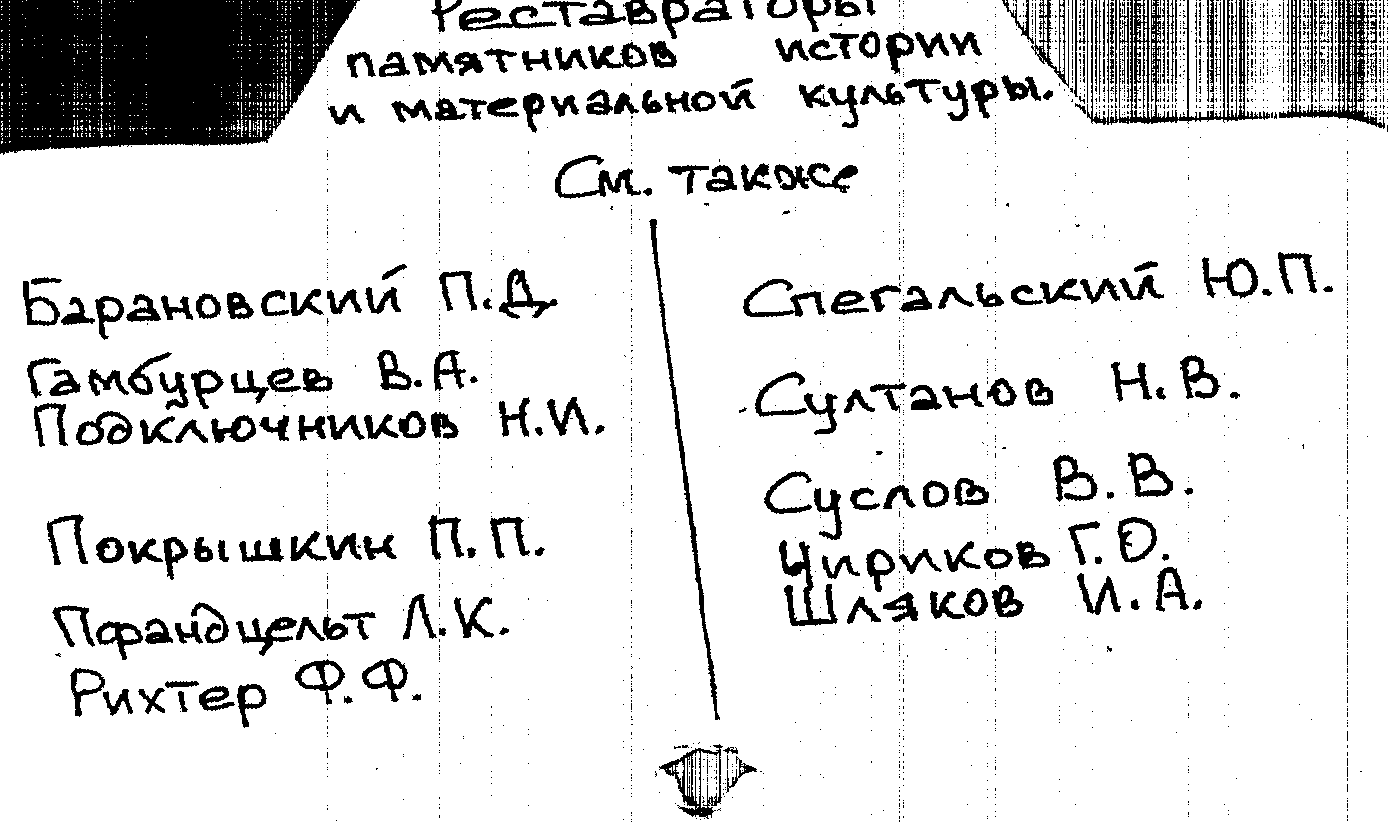 Реставраторы
памятников истории
и материальной культуры.
См. также
Барановский П.Д.
Гамбурцев В.А.
Подключников Н.И.
Покрышкин П.П.
Пфандцельт Л.К.
Рихтер Ф.Ф.
Спегальский Ю.П.
Султанов Н.В.
Суслов В.В.
Чириков Г.О.
Шляков И.А.